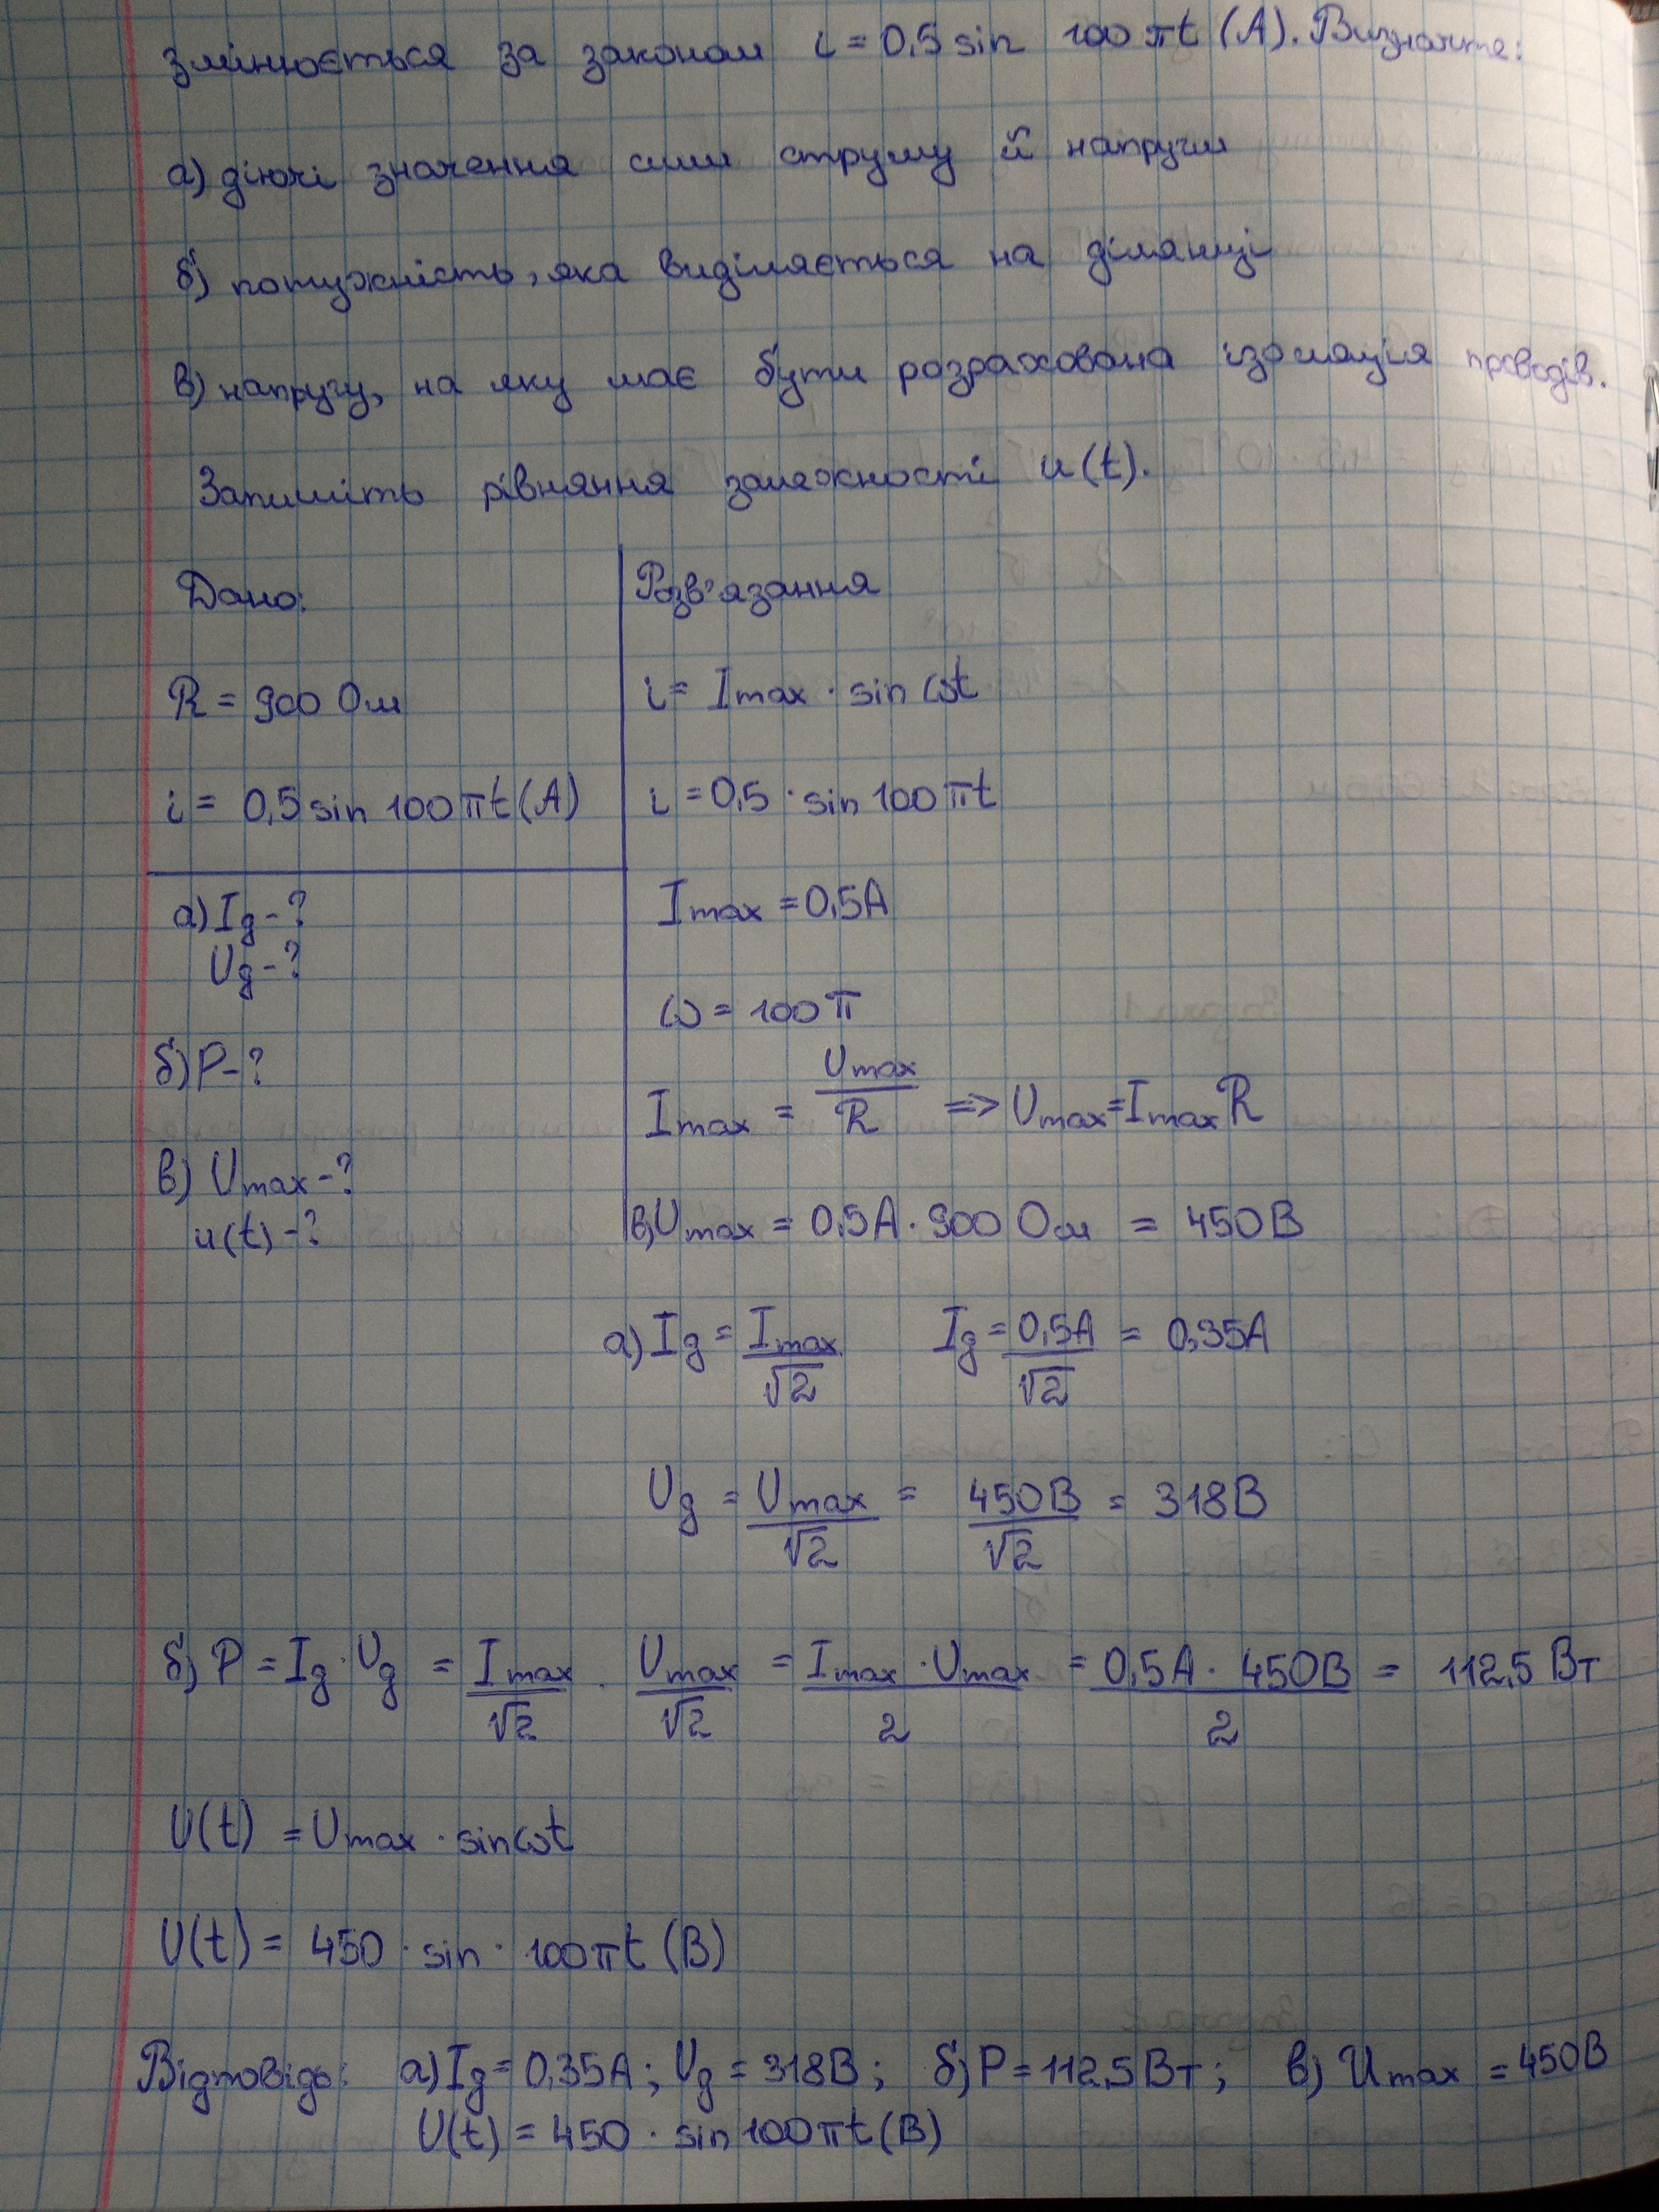 змінюється за законом i = 0,5 sin 100 πt (A). Визначте:
а) діючі значення сили струму й напруги
б) потужність, яка виділяється на ділянці
в) напругу, на яку має бути розрахована ізоляція проводів.
Запишіть рівняння залежності u(t).
Дано:
R = 900 Ом
i = 0,5 sin 100πt (A)
а) Iд - ?
Uд - ?
б) P - ?
в) Umax - ?
u(t) - ?
Розв'язання
i = Imax · sin ωt
i = 0,5 · sin 100πt
Imax = 0,5A
ω = 100π
Imax = Umax / R => Umax = Imax R
в) Umax = 0,5A · 900 Ом = 450В
а) Iд = Imax / √2 Iд = 0,5A / √2 = 0,35A
Uд = Umax / √2 = 450В / √2 = 318В
б) P = Iд · Uд = Imax / √2 · Umax / √2 = Imax · Umax / 2 = 0,5A · 450В / 2 = 112,5 Вт
U(t) = Umax · sin ωt
U(t) = 450 · sin · 100πt (В)
Відповідь: а) Iд = 0,35A; Uд = 318В; б) P = 112,5 Вт; в) Umax = 450В
U(t) = 450 · sin 100πt (В)